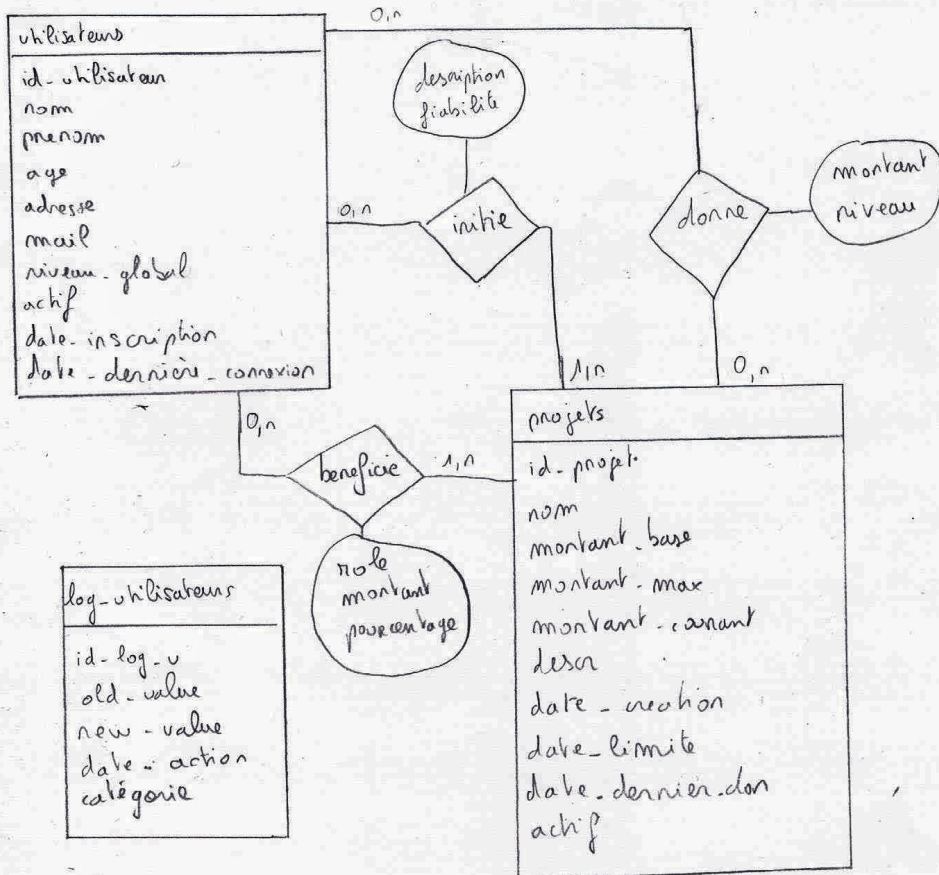 utilisateurs
id_utilisateur
nom
prenom
age
adresse
mail
niveau_global
actif
date_inscription
date_dernière_connexion
0,n
description
fiabilité
0,n
initie
1,n
donne
montant
niveau
0,n
0,n
beneficie
1,n
role
montant
pourcentage
projets
id_projet
nom
montant_base
montant_max
montant_courant
descr
date_creation
date_limite
date_dernier_don
actif
log_utilisateurs
id_log_u
old_value
new_value
date_action
catégorie